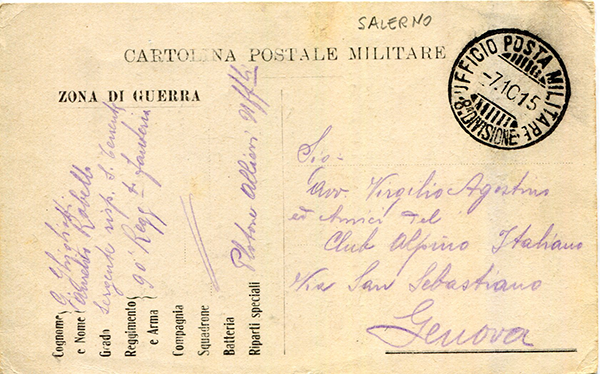 SALERNO
CARTOLINA POSTALE MILITARE
ZONA DI GUERRA
UFFICIO POSTA MILITARE
-7.10.15
8ª DIVISIONE
Sig.
Avv Virgilio Agostino
ed Amici del
Club Alpino Italiano
Via San Sebastiano
Genova
Cognome
e Nome
Grado Sergente
Reggimento 90º Regg.
e Arma Fanteria
Compagnia
Squadrone
Batteria
Riparti speciali Plotone Allievi Uff.li